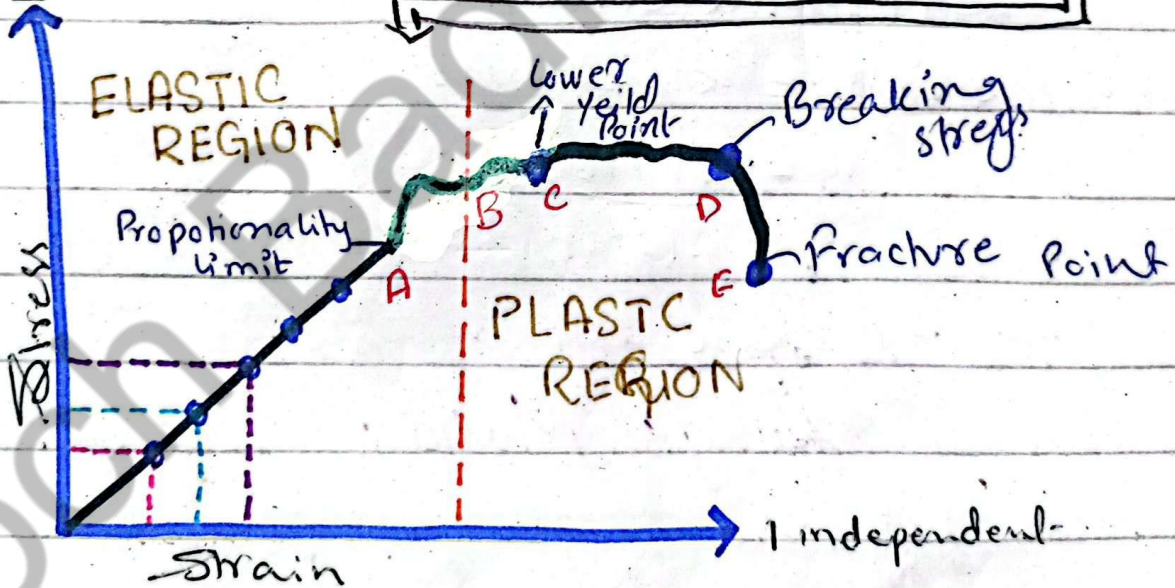 ELASTIC
REGION
Lower
Yeild
Point
Breaking
stress
B
C
D
Propotionality
limit
A
E
Fracture Point
PLASTC
REGION
Stress
Strain
independent